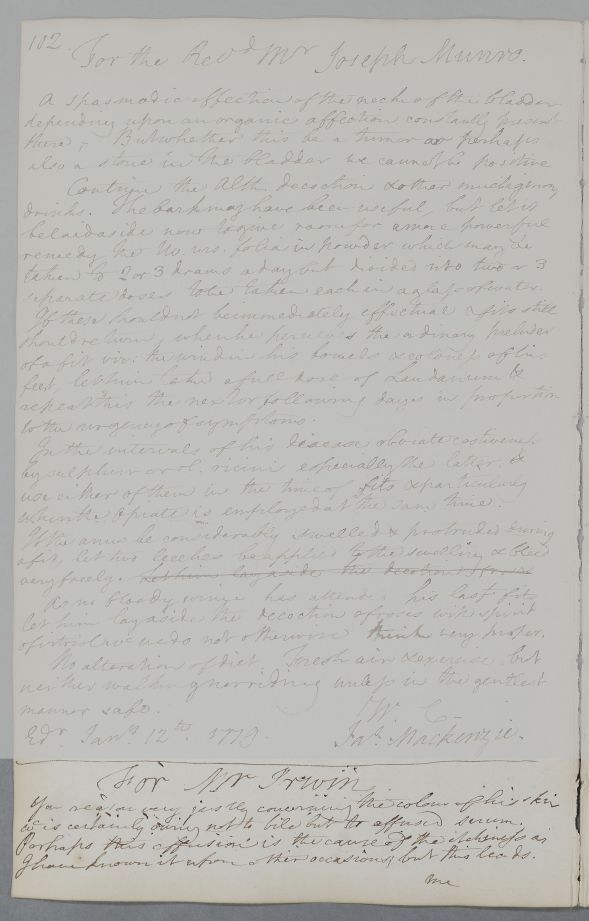 102.
For the Revd Mr Joseph Munro.
A spasmodic affection of the neck of the bladder
depending upon an organic affection constantly present
there; But whether this be a tumor or perhaps
also a stone in the bladder we cannot be positive
Continue the Alth. decoction & other mucilaginous
drinks. The bark may have been useful, but let it
be laid aside now to give room for a more powerful
remedy the Uv. urs. folia in powder which may be
taken to 2 or 3 drams a day but divided into two or 3
separate doses to be taken each in a glass of water.
If these should not be immediately effectual & fits still
should return, when he perceives the ordinary preludes
of a fit viz: the wind in his bowels & coldness of his
feet, let him take a full dose of Laudanum &
repeat this the next or following days in proportion
to the urgency of symptoms.
In the intervals of his disease obviate costiveness
by sulphur or ol. ricini especially the latter &
use either of them in the time of fits & particularly
when the Opiate is employed at the same time.
If the anus be considerably swelled & protruded during
a fit, let two leeches be applied to the swelling & bleed
very freely. Let him lay aside the decoction of roses
As no bloody urine has attended his last fits
let him lay aside the decoction of roses with spirit
of vitriol we do not otherwise think very proper.
No alteration of diet. Fresh air & exercise, but
neither walking nor riding unless in the gentlest
manner safe.
W. C.
Edr. Janry 12th. 1779. Jas. Mackenzie.
For Mr Irwin
You reason very justly concerning the colour of his skin
it is certainly owing not to bile but to effused serum.
Perhaps this effusion is the cause of the itchiness as
I have known it upon other occasions, but this leads
me